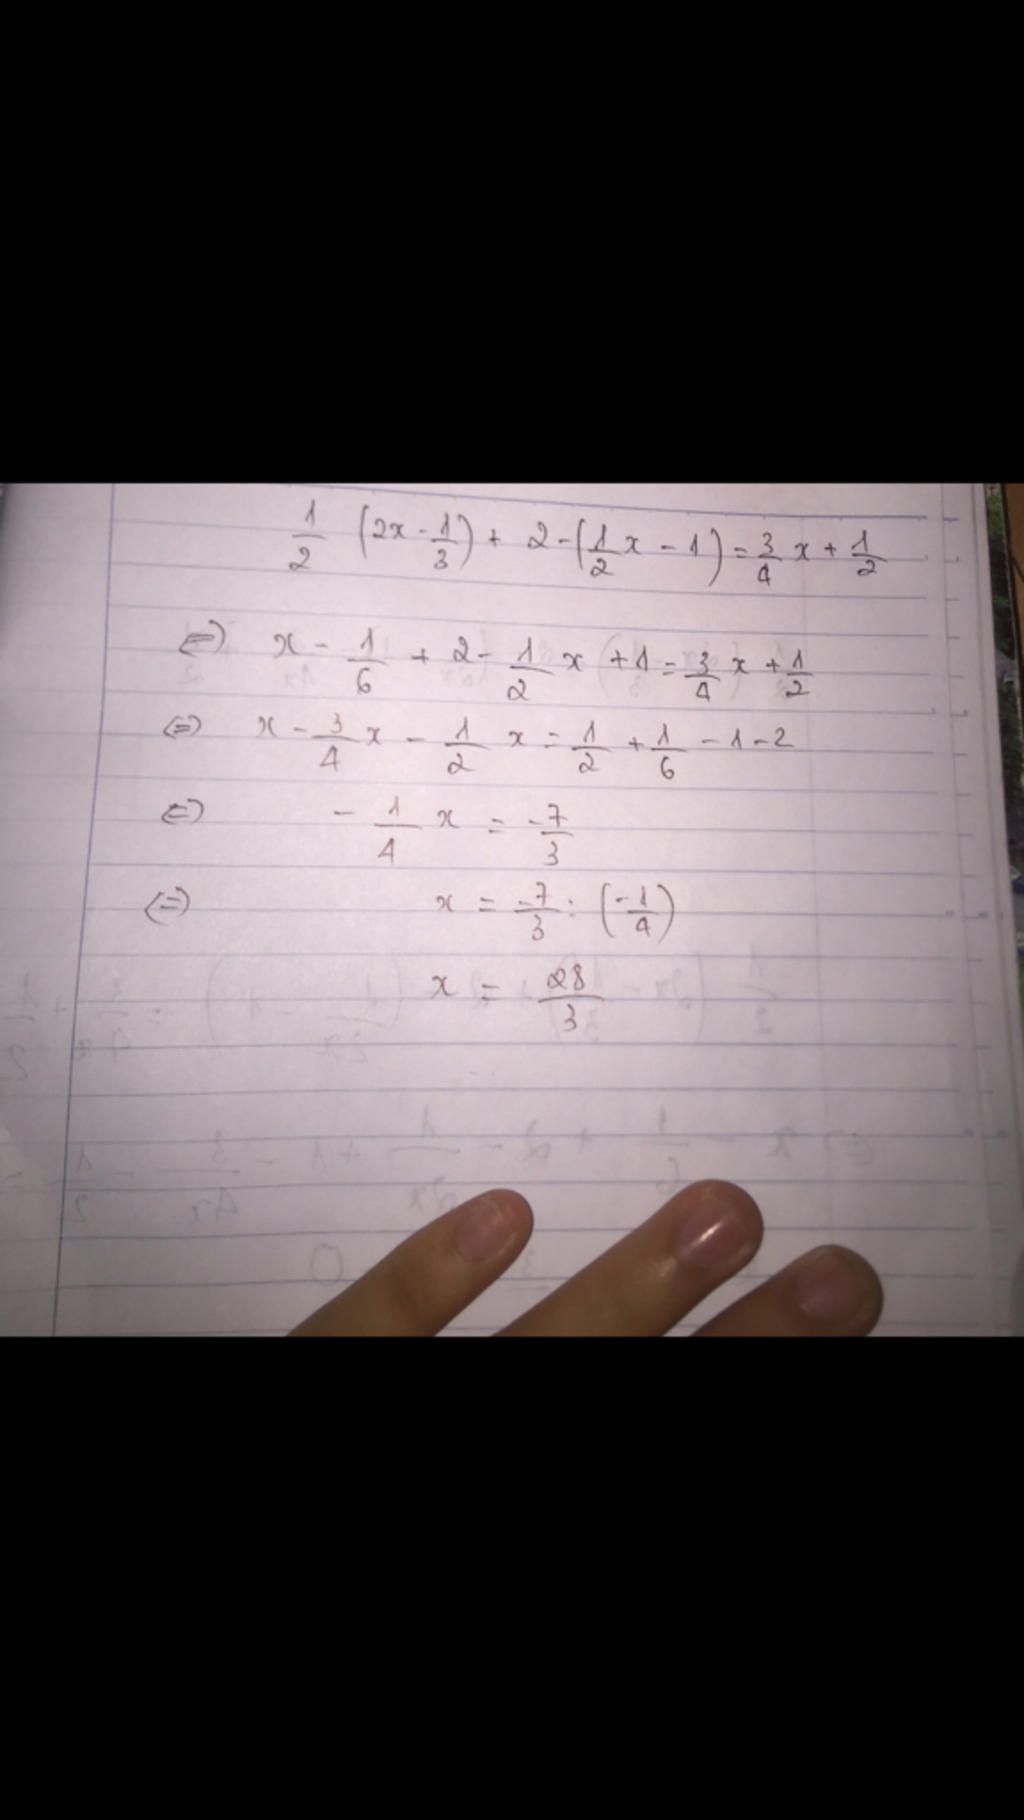 1/2 (2x - 1/3) + 2 - (1/2 x - 1) = 3/4 x + 1/2
⇔ x - 1/6 + 2 - 1/2 x + 1 = 3/4 x + 1/2
⇔ x - 3/4 x - 1/2 x = 1/2 + 1/6 - 1 - 2
⇔ - 1/4 x = -7/3
⇔ x = -7/3 : (-1/4)
x = 28/3